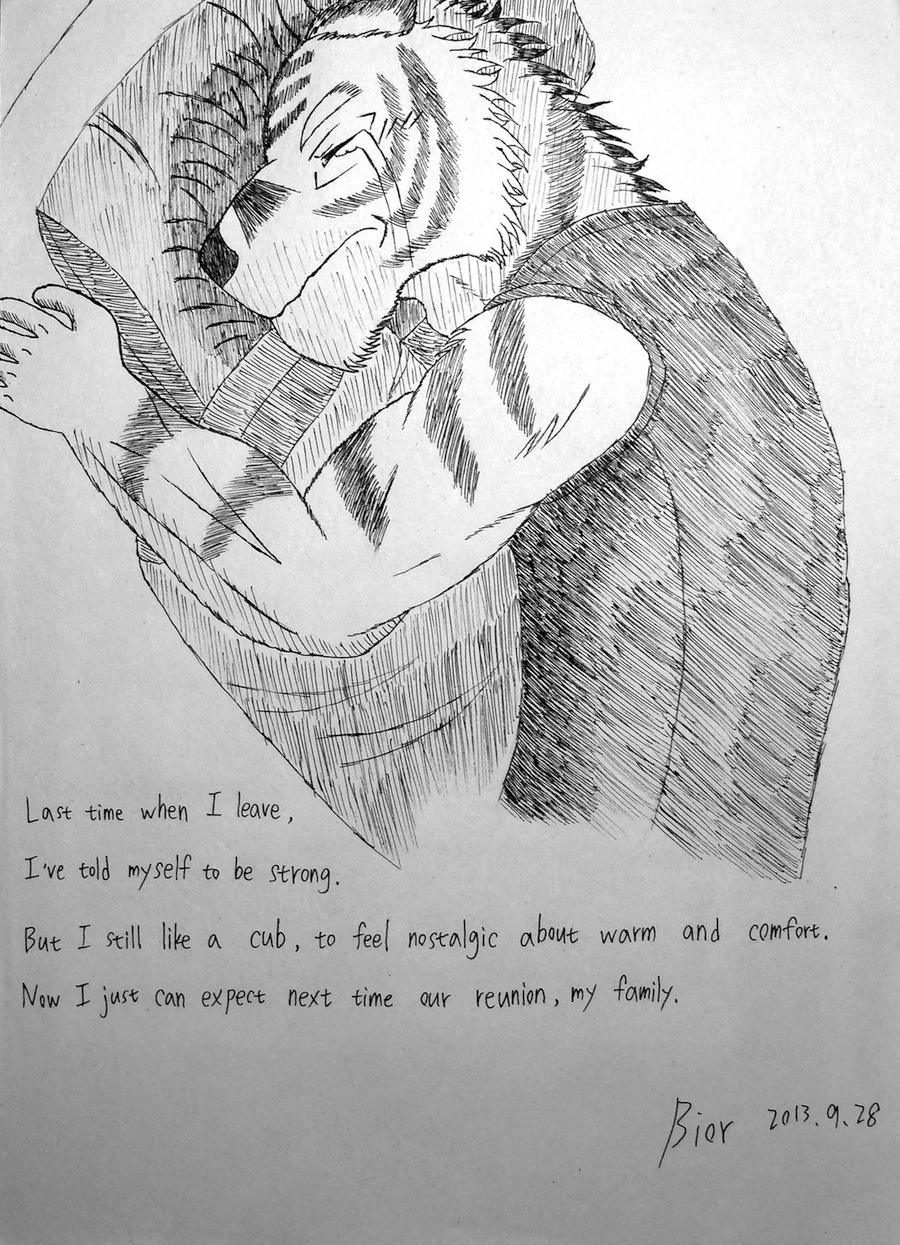 Last time when I leave,
I've told myself to be strong.
But I still like a cub, to feel nostalgic about warm and comfort.
Now I just can expect next time our reunion, my family.
Bior 2013.9.28